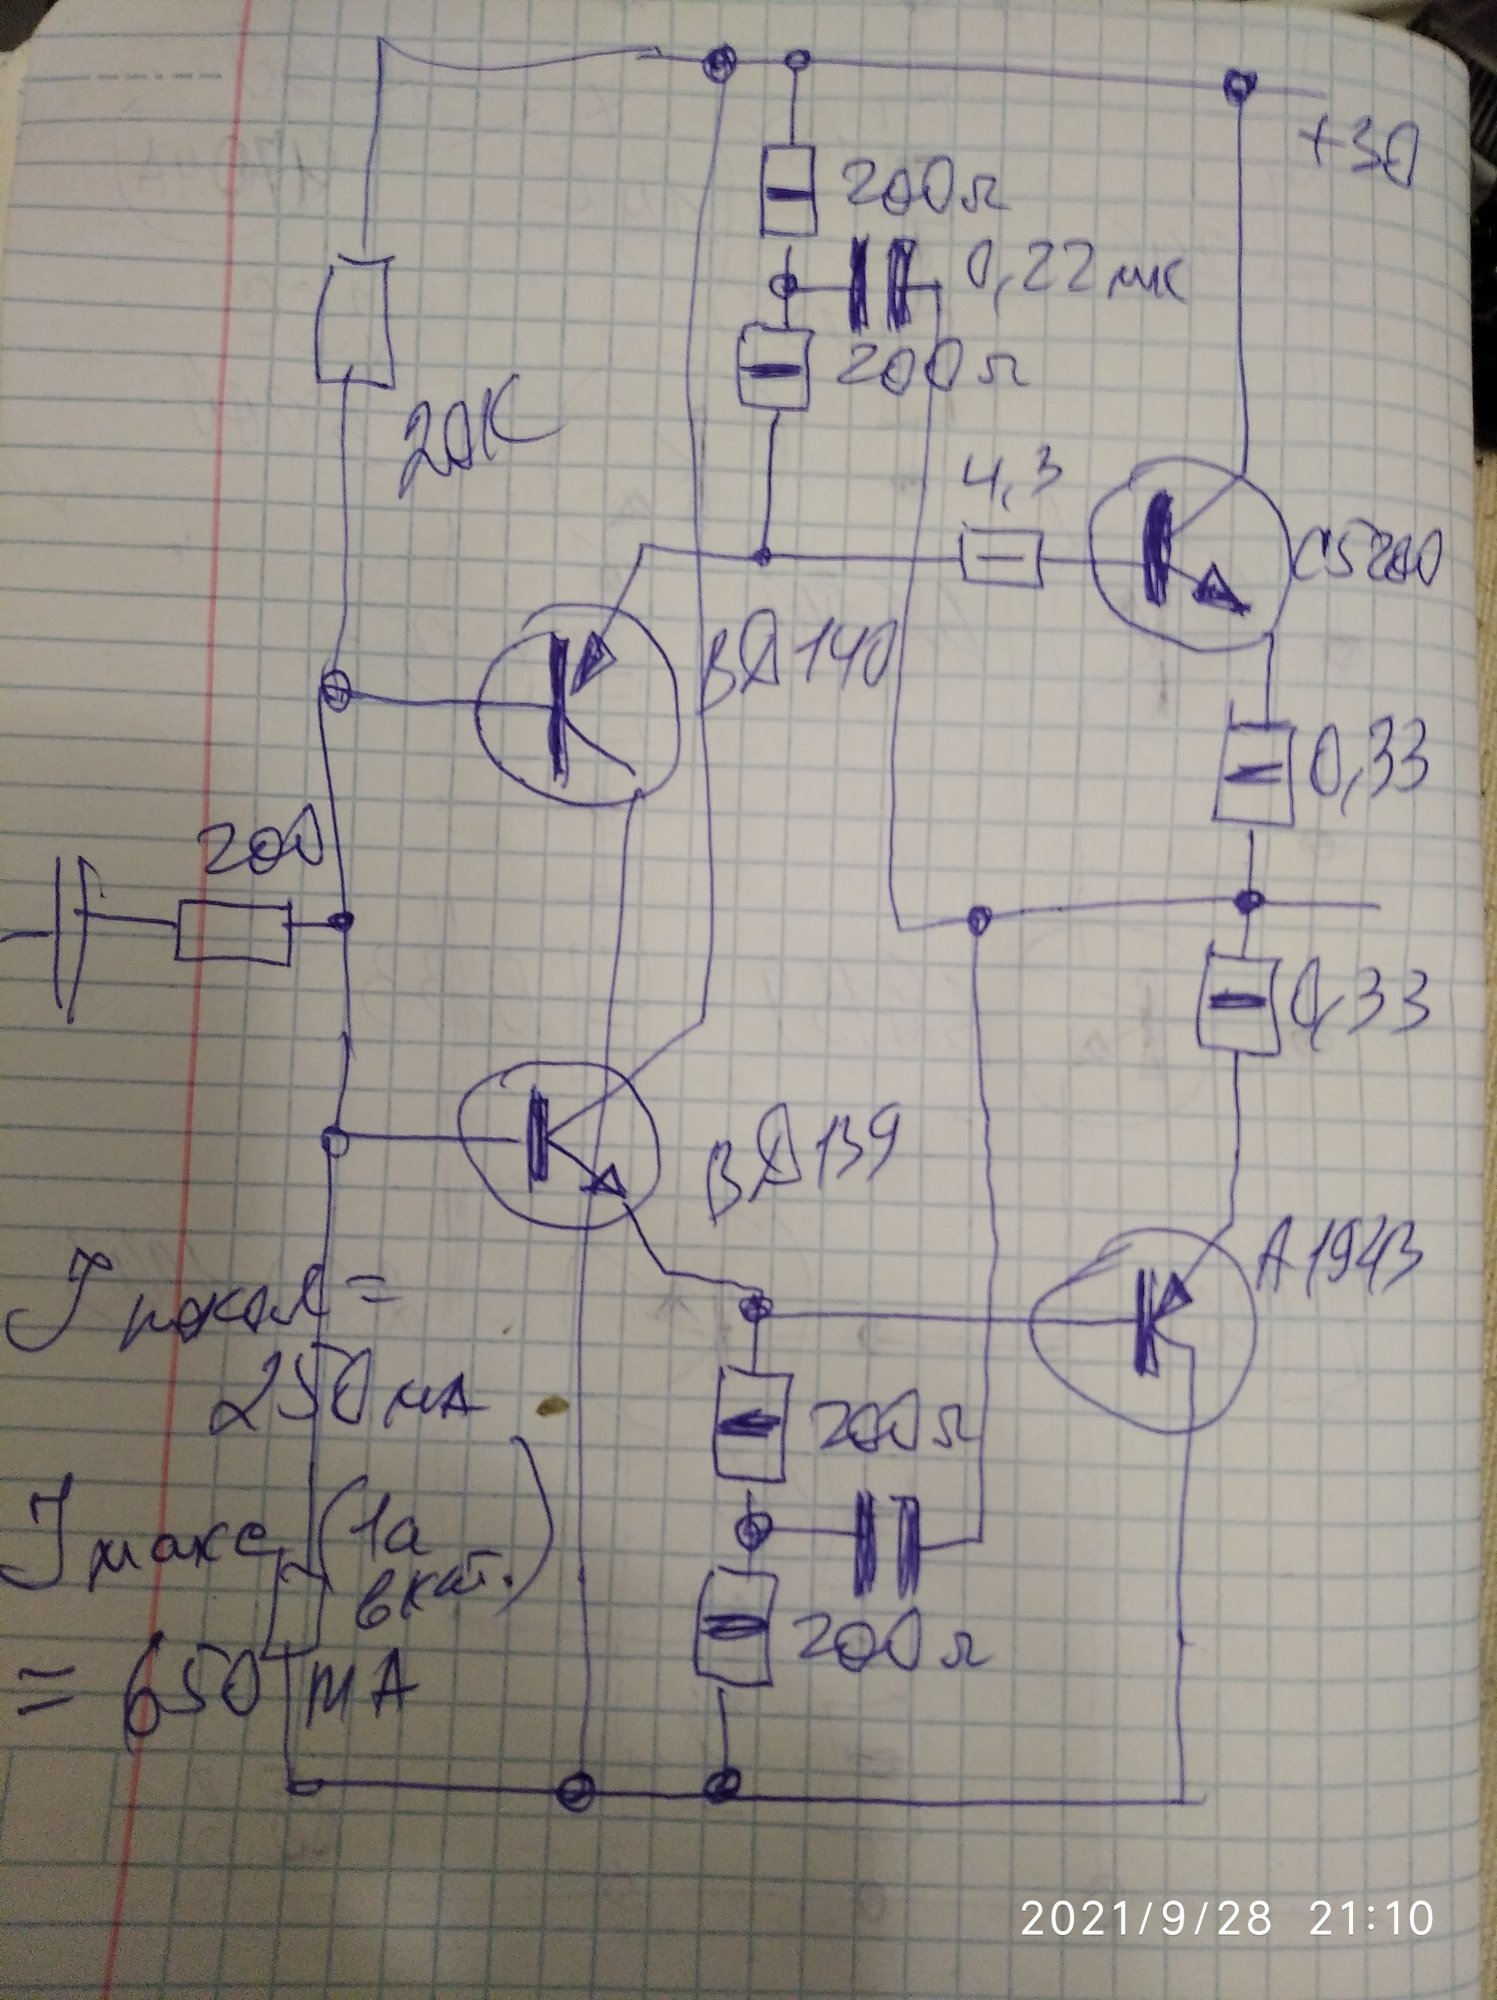 +30
200Ω
0,22мк
200Ω
20К
4,3
C5200
BD140
0,33
200
0,33
BD139
A1943
I покоя =
250 мА
200Ω
I макс (1а
в кат.)
= 650 mA
200Ω
2021/9/28 21:10